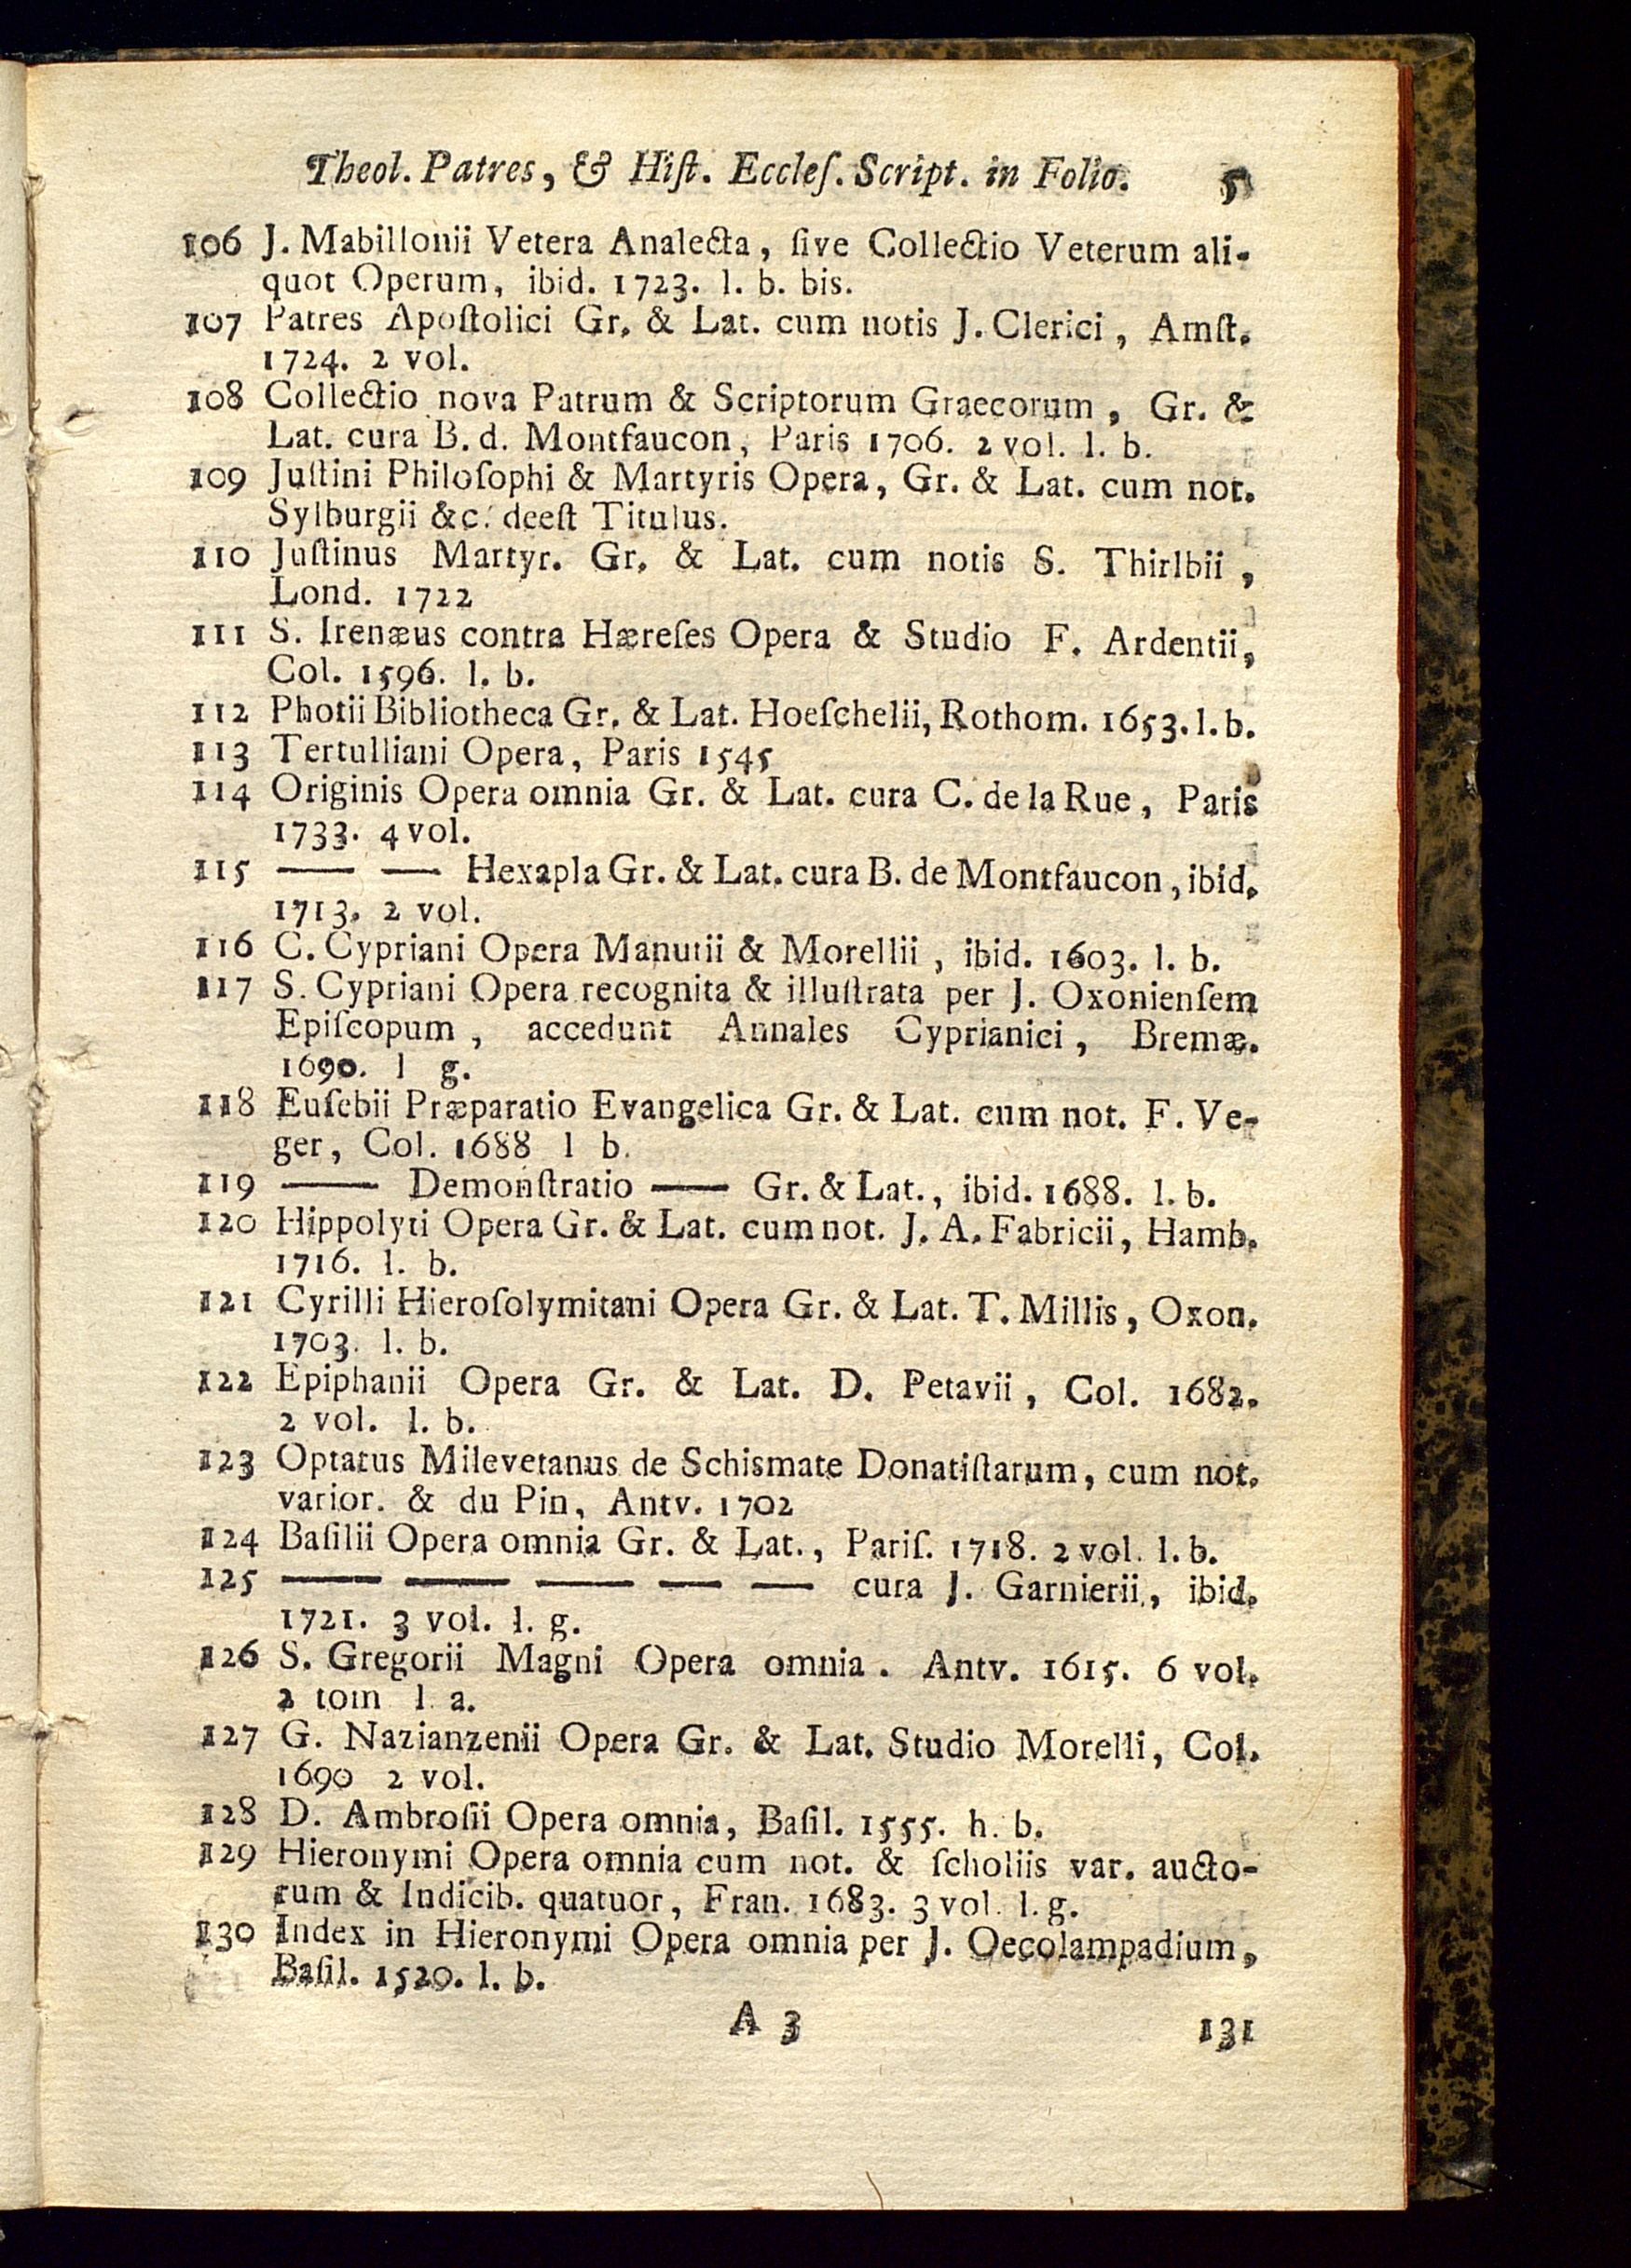 Theol. Patres, & Hiſt. Eccleſ. Script. in Folio. 5
106 J. Mabillonii Vetera Analecta, ſive Collectio Veterum ali-
quot Operum, ibid. 1723. l. b. bis.
107 Patres Apoſtolici Gr. & Lat. cum notis J. Clerici, Amſt.
1724. 2 vol.
108 Collectio nova Patrum & Scriptorum Graecorum, Gr. &
Lat. cura B. d. Montfaucon, Paris 1706. 2 vol. l. b.
109 Juſtini Philoſophi & Martyris Opera, Gr. & Lat. cum not.
Sylburgii &c. deeſt Titulus.
110 Juſtinus Martyr. Gr. & Lat. cum notis S. Thirlbii,
Lond. 1722
111 S. Irenæus contra Hæreſes Opera & Studio F. Ardentii,
Col. 1596. l. b.
112 Photii Bibliotheca Gr. & Lat. Hoeſchelii, Rothom. 1653. l. b.
113 Tertulliani Opera, Paris 1545
114 Originis Opera omnia Gr. & Lat. cura C. de la Rue, Paris
1733. 4 vol.
115 —— — Hexapla Gr. & Lat. cura B. de Montfaucon, ibid.
1713. 2 vol.
116 C. Cypriani Opera Manutii & Morellii, ibid. 1603. l. b.
117 S. Cypriani Opera recognita & illuſtrata per J. Oxonienſem
Epiſcopum, accedunt Annales Cyprianici, Bremæ.
1690. l g.
118 Euſebii Præparatio Evangelica Gr. & Lat. cum not. F. Ve-
ger, Col. 1688 l b.
119 —— Demonſtratio —— Gr. & Lat., ibid. 1688. l. b.
120 Hippolyti Opera Gr. & Lat. cum not. J. A. Fabricii, Hamb.
1716. l. b.
121 Cyrilli Hieroſolymitani Opera Gr. & Lat. T. Millis, Oxon.
1703. l. b.
122 Epiphanii Opera Gr. & Lat. D. Petavii, Col. 1682.
2 vol. l. b.
123 Optatus Milevetanus de Schismate Donatiſtarum, cum not.
varior. & du Pin, Antv. 1702
124 Baſilii Opera omnia Gr. & Lat., Pariſ. 1718. 2 vol. l. b.
125 —— —— —— — — cura J. Garnierii, ibid.
1721. 3 vol. l. g.
126 S. Gregorii Magni Opera omnia. Antv. 1615. 6 vol.
2 tom l a.
127 G. Nazianzenii Opera Gr. & Lat. Studio Morelli, Col.
1690 2 vol.
128 D. Ambroſii Opera omnia, Baſil. 1555. h. b.
129 Hieronymi Opera omnia cum not. & ſcholiis var. aucto-
rum & Indicib. quatuor, Fran. 1683. 3 vol. l. g.
130 Index in Hieronymi Opera omnia per J. Oecolampadium,
Baſil. 1520. l. b.
A 3 131